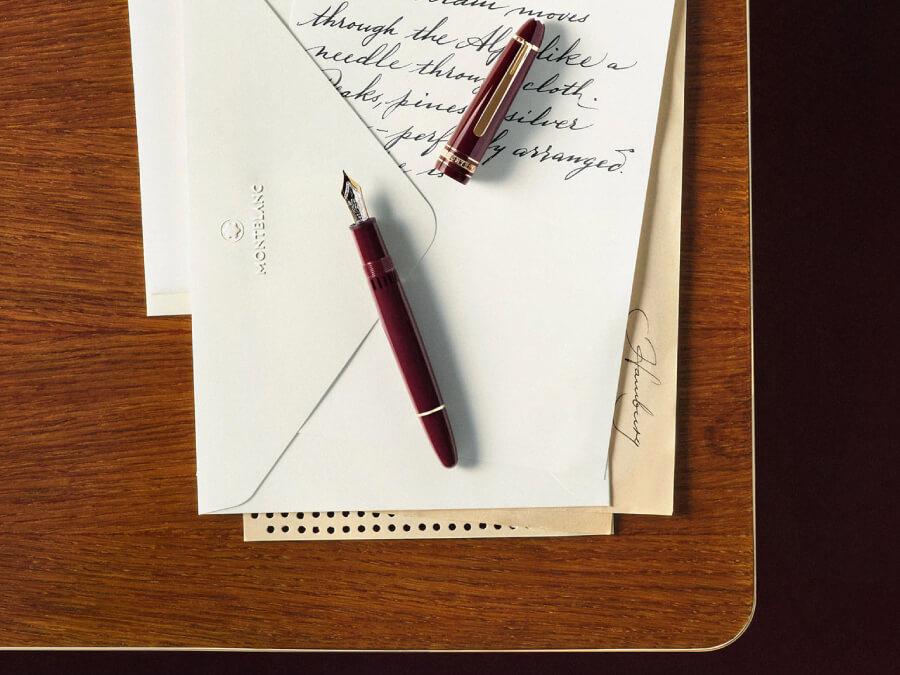 moves
through the Alps like a
needle through cloth.
Peaks, pines, silver
perfectly arranged.
is
MONTBLANC
Hamburg